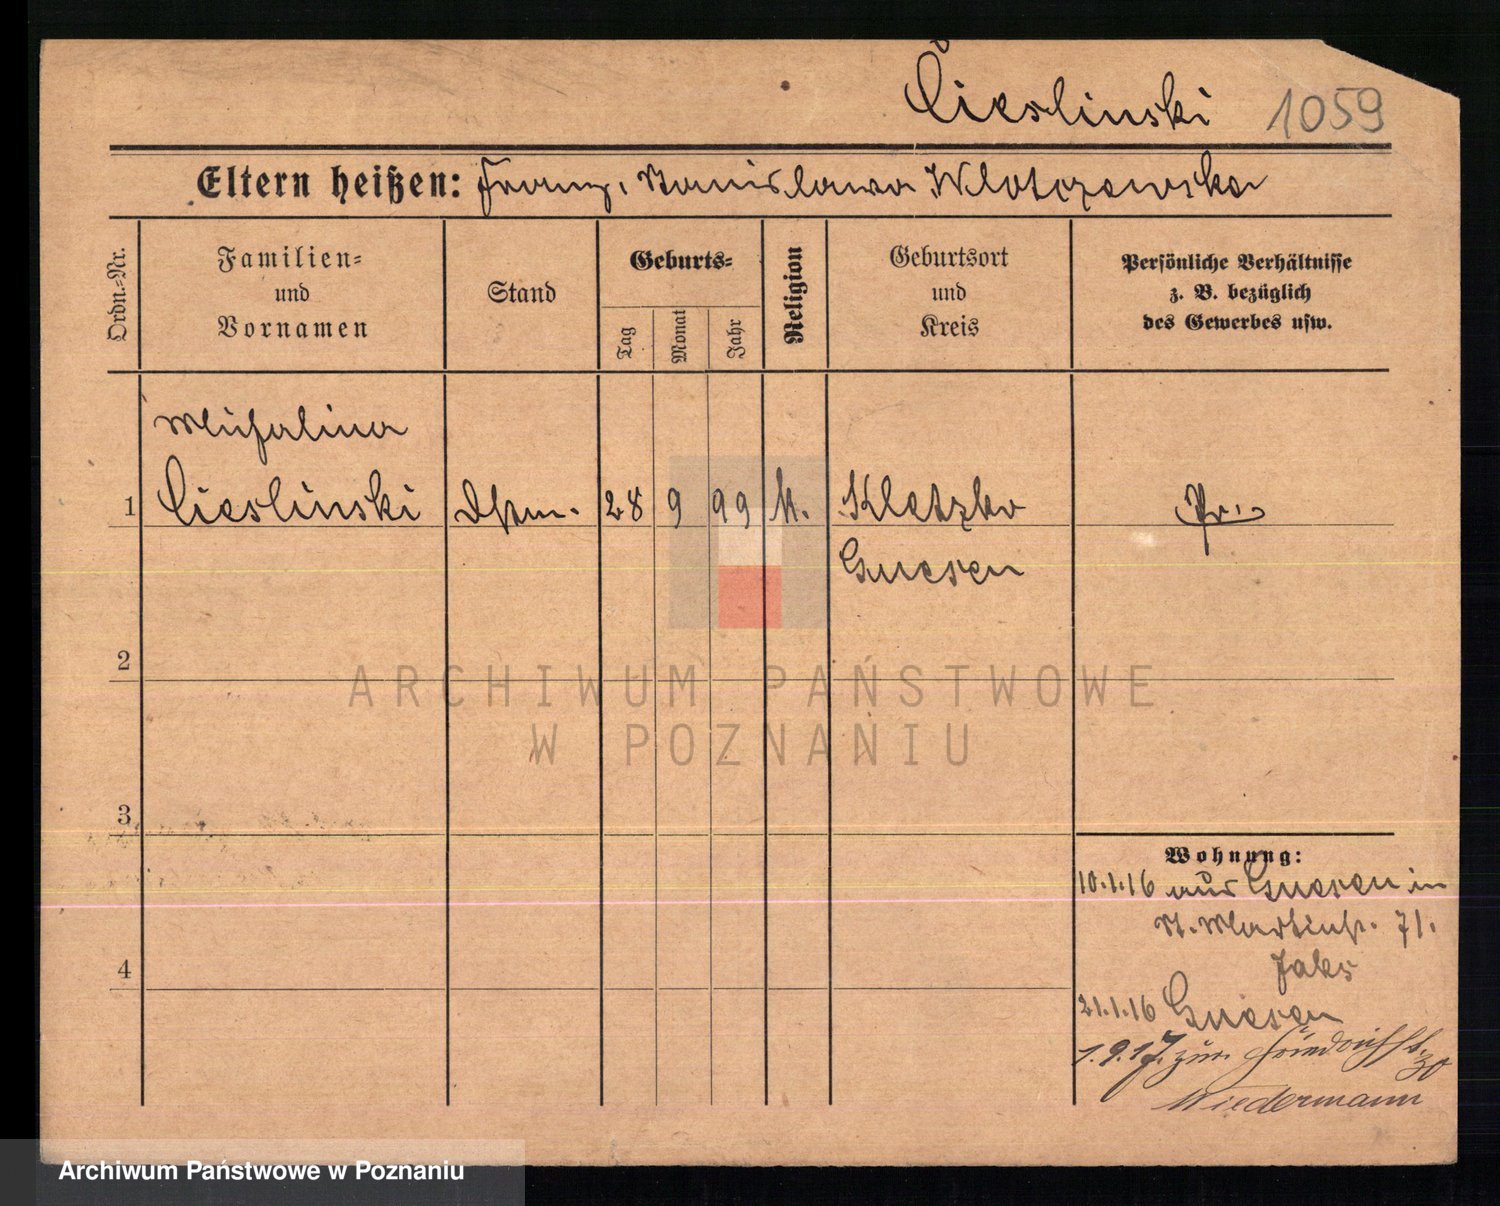 Cieslinski 1059
Eltern heißen: Franz, Stanislawa Wlotczewska
Ordn.-Nr.
Familien-
und
Vornamen
Stand
Geburts-
Tag
Monat
Jahr
Religion
Geburtsort
und
Kreis
Persönliche Verhältnisse
z. B. bezüglich
des Gewerbes usw.
Michalina
1 Cieslinski 28 9 99 k. Kletzko Pr.
Gnesen
2
3
4
Wohnung:
10.1.16 aus Gnesen in
St. Martinstr. 71.
Jaks
21.1.16 Gnesen
1.9.17. zur. Friedrichstr. 30
Niedermann
ARCHIWUM PAŃSTWOWE
W POZNANIU
Archiwum Państwowe w Poznaniu